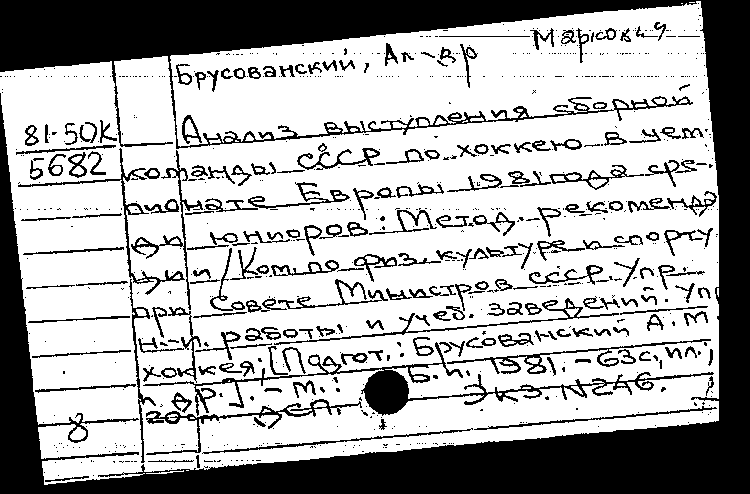 Брусованский, Ал-др Маркович
81-50К
5682
Анализ выступления сборной
команды СССР по хоккею в чем-
пионате Европы 1981 года сре-
ди юниоров: Метод. рекоменда
ции / Ком. по физ. культуре и спорту
при Совете Министров СССР. Упр.
н.-и. работы и учеб. заведений. Уп
хоккея; [Подгот.: Брусованский А.М.
и др.]. - М.: Б.и., 1981. - 63с, ил.;
20см. ДСП. Экз. N246.
8